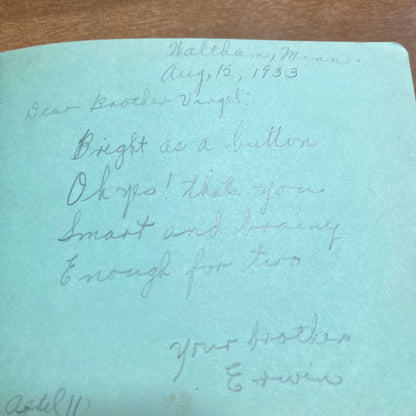 Waltham, Minn.
Aug, 12, 1933
Dear Brother Virgel:
Bright as a button
Oh yes! thats you
Smart and brainy
Enough for two
Your brother
Erwin